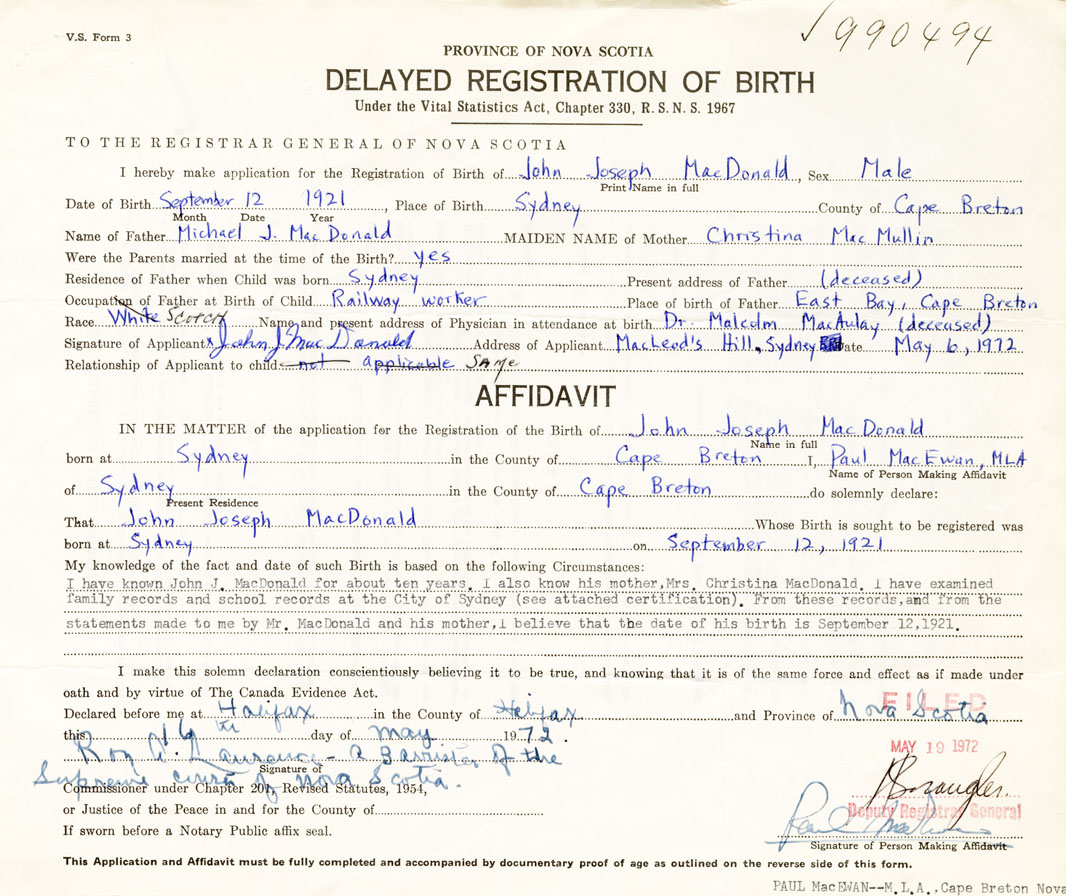 V.S. Form 3
990494
PROVINCE OF NOVA SCOTIA
DELAYED REGISTRATION OF BIRTH
Under the Vital Statistics Act, Chapter 330, R. S. N. S. 1967
TO THE REGISTRAR GENERAL OF NOVA SCOTIA
I hereby make application for the Registration of Birth of John Joseph MacDonald, Sex Male
Print Name in full
Date of Birth September 12 1921, Place of Birth Sydney County of Cape Breton
Month Date Year
Name of Father Michael J. MacDonald MAIDEN NAME of Mother Christina MacMullin
Were the Parents married at the time of the Birth? yes
Residence of Father when Child was born Sydney Present address of Father (deceased)
Occupation of Father at Birth of Child Railway worker Place of birth of Father East Bay, Cape Breton
Race White Scotch Name and present address of Physician in attendance at birth Dr. Malcolm MacAulay (deceased)
Signature of Applicant x John J MacDonald Address of Applicant MacLeod's Hill, Sydney Date May 6, 1972
Relationship of Applicant to child not applicable SAME
AFFIDAVIT
IN THE MATTER of the application for the Registration of the Birth of John Joseph MacDonald
Name in full
born at Sydney in the County of Cape Breton I, Paul MacEwan, MLA
Name of Person Making Affidavit
of Sydney in the County of Cape Breton do solemnly declare:
Present Residence
That John Joseph MacDonald Whose Birth is sought to be registered was
born at Sydney on September 12, 1921
My knowledge of the fact and date of such Birth is based on the following Circumstances:
I have known John J. MacDonald for about ten years. I also know his mother,Mrs. Christina MacDonald. I have examined
family records and school records at the City of Sydney (see attached certification). From these records,and from the
statements made to me by Mr. MacDonald and his mother,I believe that the date of his birth is September 12,1921.
I make this solemn declaration conscientiously believing it to be true, and knowing that it is of the same force and effect as if made under
oath and by virtue of The Canada Evidence Act.
FILED
Declared before me at Halifax in the County of Halifax and Province of Nova Scotia
this 16th day of May 1972.
MAY 19 1972
Roy A. Laurence - a Barrister of the
Signature of
Supreme Court of Nova Scotia.
Commissioner under Chapter 201, Revised Statutes, 1954,
Deputy Registrar General
or Justice of the Peace in and for the County of
Paul MacEwan
If sworn before a Notary Public affix seal.
Signature of Person Making Affidavit
This Application and Affidavit must be fully completed and accompanied by documentary proof of age as outlined on the reverse side of this form.
PAUL MacEWAN--M.L.A.,Cape Breton Nova